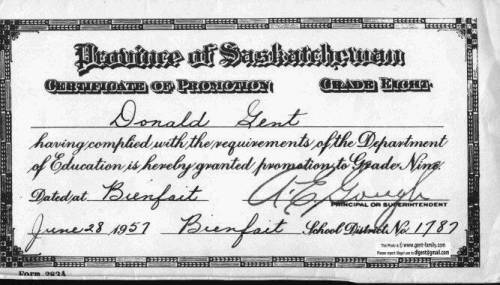 Province of Saskatchewan
Certificate of Promotion Grade Eight
Donald Gent
having complied with the requirements of the Department
of Education, is hereby granted promotion to Grade Nine.
Dated at Bienfait A. E. Gough
PRINCIPAL OR SUPERINTENDENT
June 28 1957 Bienfait School District No. 1787
This Photo is © www.gent-family.com
Please report illegal use to dlgent@gmail.com
Form 283A